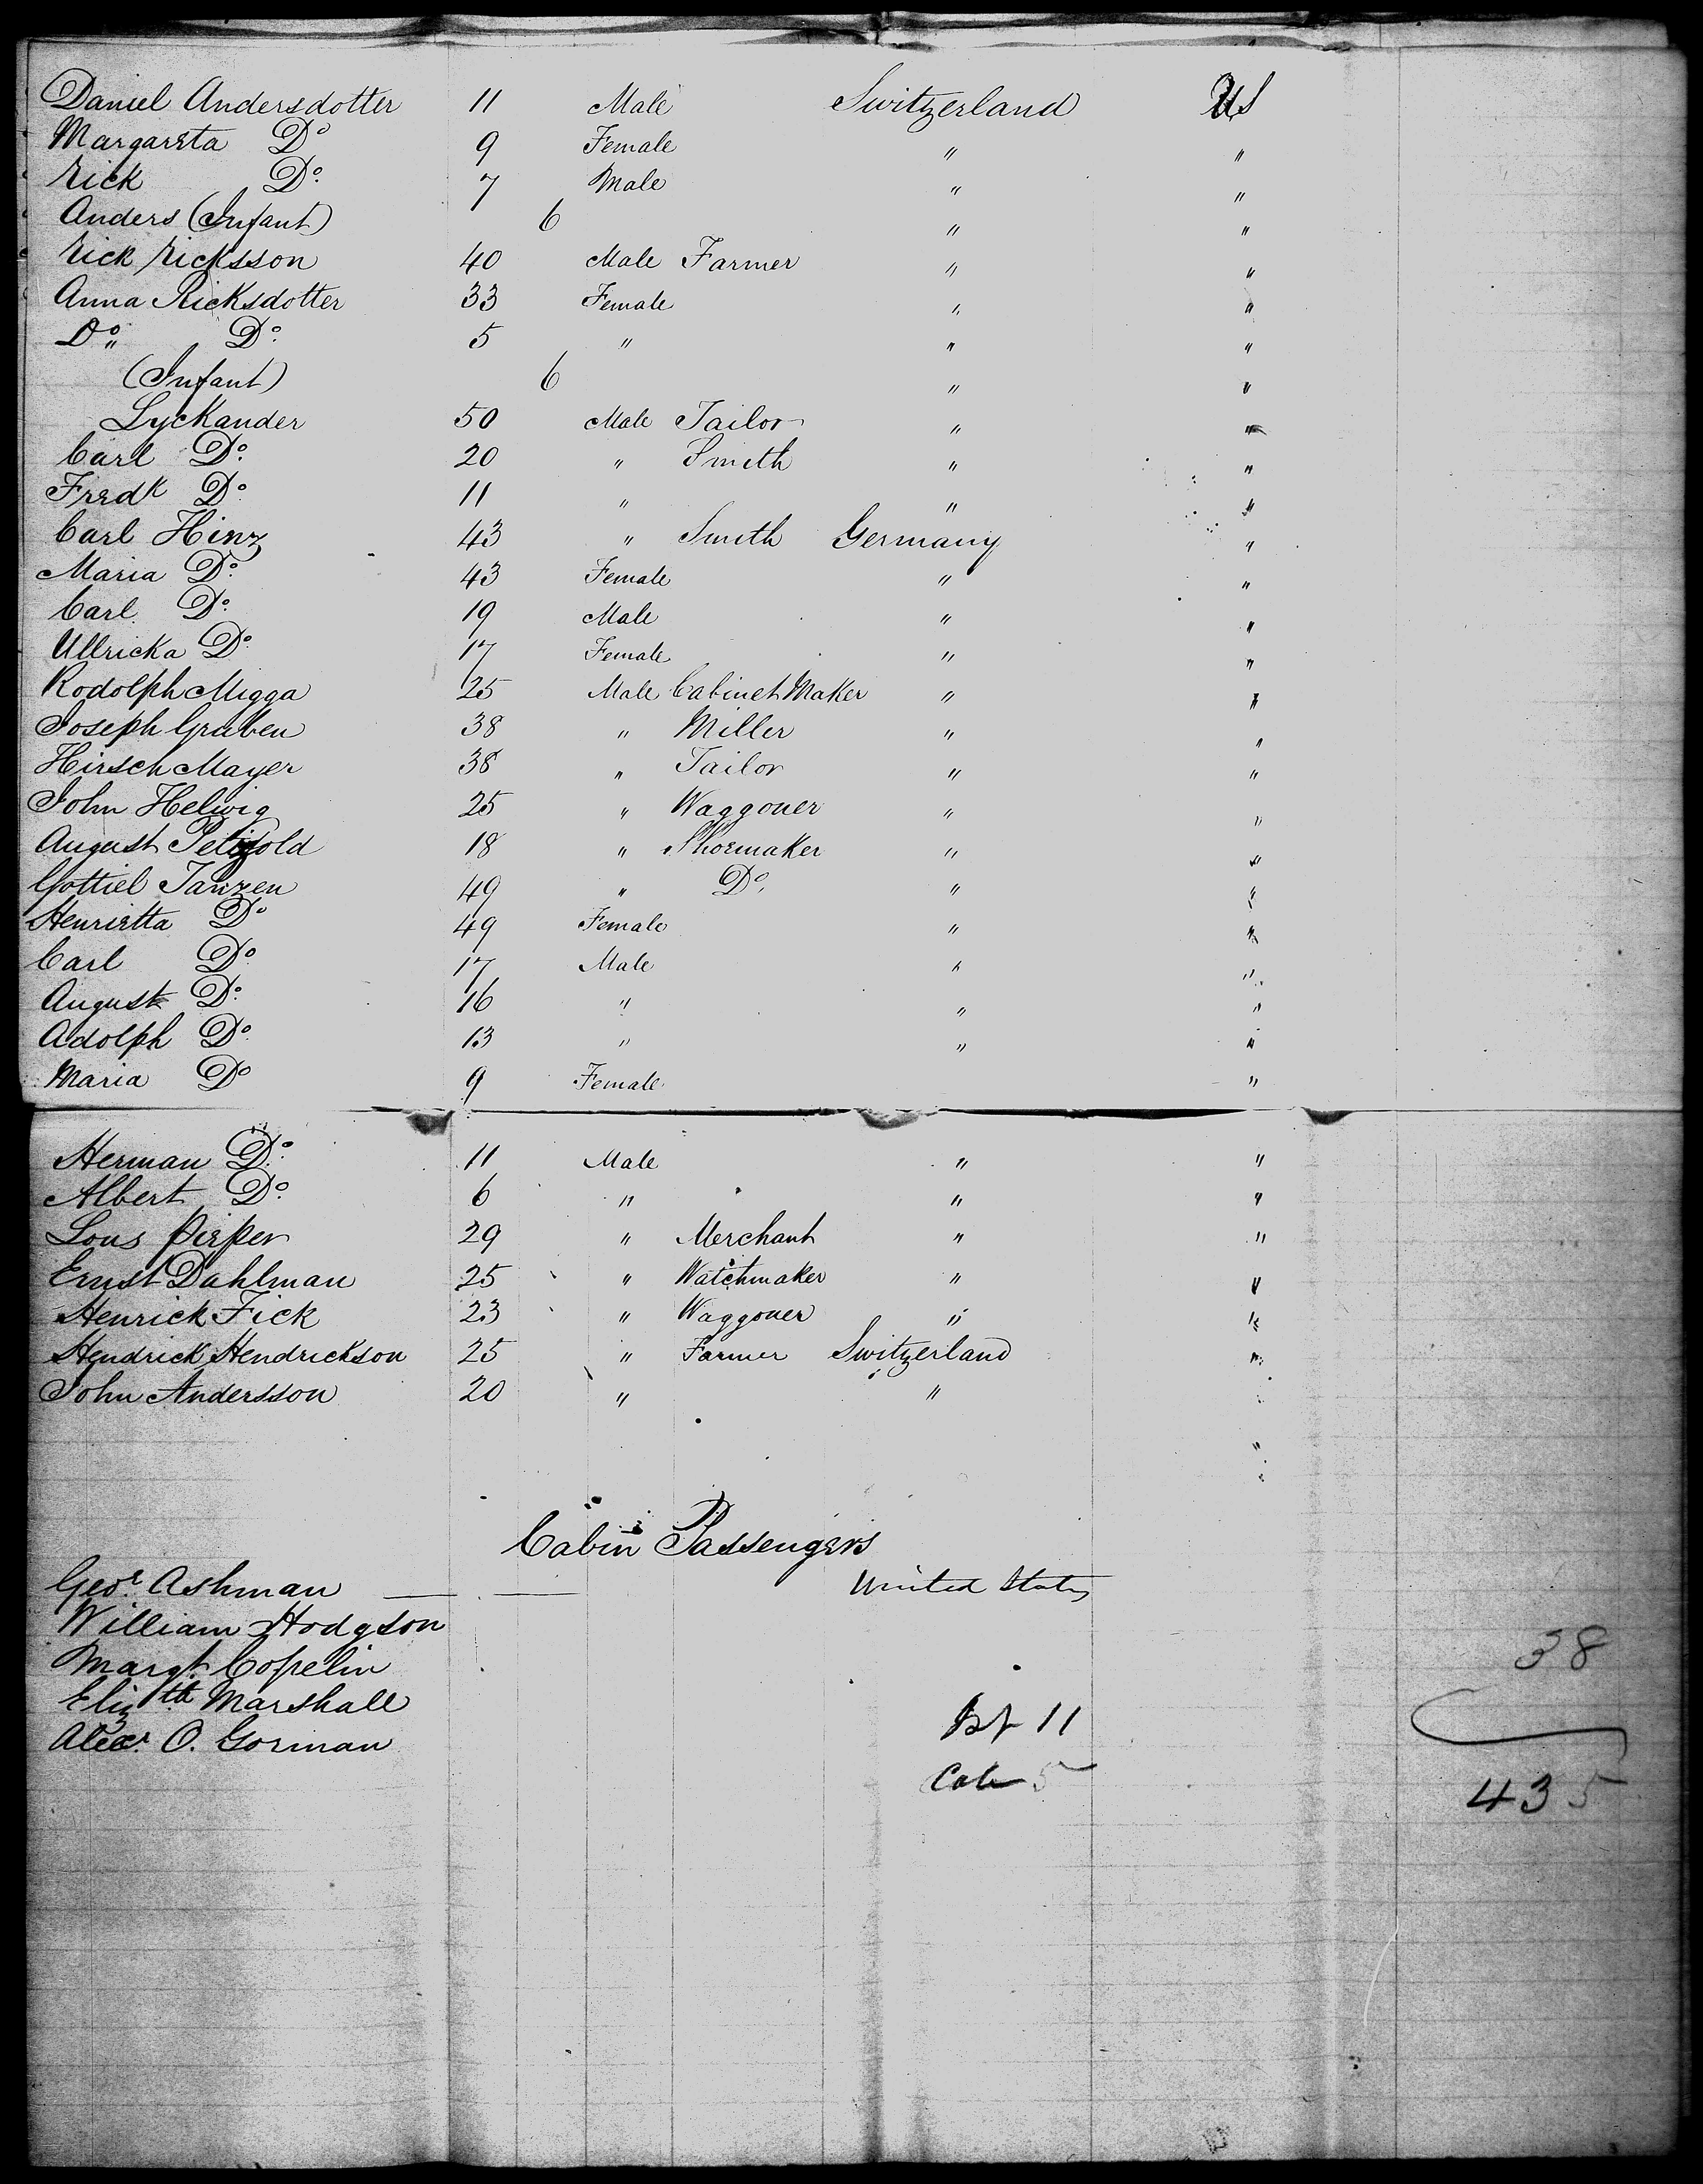 Daniel Andersdotter 11 Male Switzerland US
Margareta Do 9 Female " "
Erick Do 7 Male " "
Anders (Infant) 6 " "
Erick Ericksson 40 Male Farmer " "
Anna Ricksdotter 33 Female " "
Do " Do 5 " " "
(Infant) 6 " "
Lyckander 50 Male Tailor " "
Carl Do 20 " Smith " "
Fredk Do 11 " " "
Carl Hinz 43 " Smith Germany "
Maria Do 43 Female " "
Carl Do 19 Male " "
Ullricka Do 17 Female " "
Rodolph Migga 25 Male Cabinet Maker " "
Joseph Graben 38 " Miller " "
Hirsch Mayer 38 " Tailor " "
John Helwig 25 " Waggoner " "
August Petizold 18 " Shoemaker " "
Gottiel Janzen 49 " Do " "
Henrietta Do 49 Female " "
Carl Do 17 Male " "
August Do 16 " " "
Adolph Do 13 " " "
Maria Do 9 Female "
Herman Do 11 Male " "
Albert Do 6 " " "
Lous Pieper 29 " Merchant " "
Ernst Dahlman 25 " Watchmaker " "
Henrick Fick 23 " Waggoner " "
Hendrick Hendrickson 25 " Farmer Switzerland "
John Andersson 20 " " "
"
Cabin Passengers
Geor. Ashman United States
William Hodgson
Margt. Copelin
Elizth Marshall
Alexr. O. Gorman
38
11
Cab 5
435